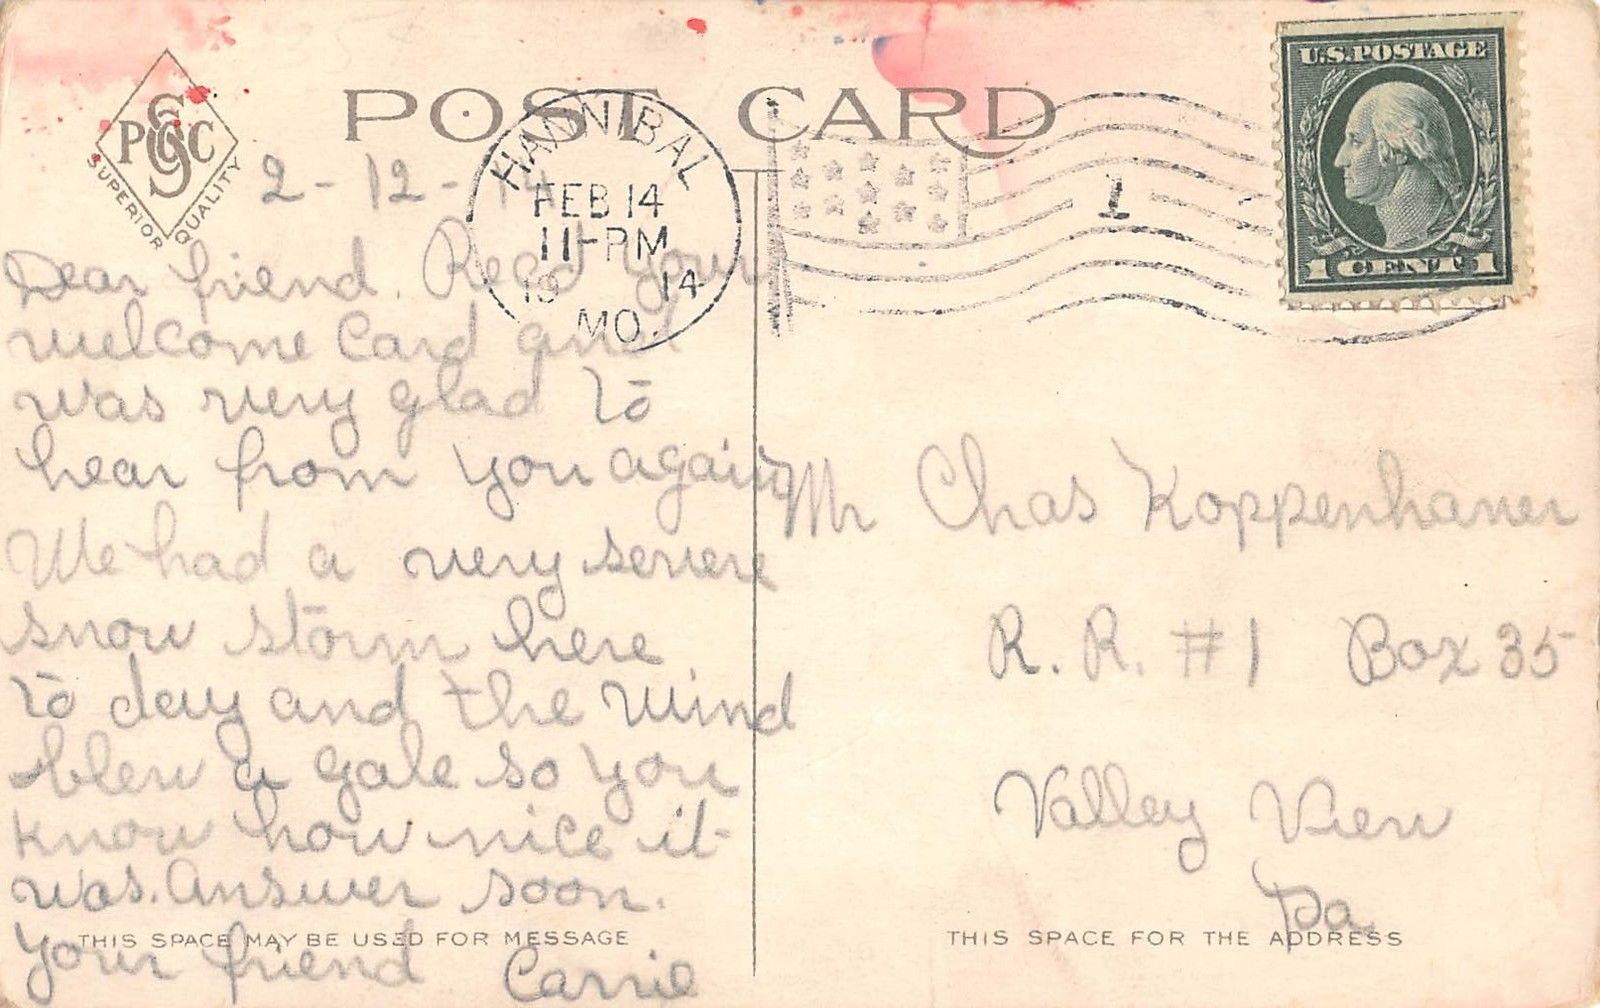 POST CARD
PSGC
SUPERIOR QUALITY
HANNIBAL
FEB 14
11-PM
19 14
MO.
1
U.S. POSTAGE
1 CENT 1
2-12-14
Dear friend. Read your
welcome Card and
was very glad to
hear from you again
We had a very severe
snow storm here
to day and the wind
blew a gale so you
know how nice it
was. Answer soon.
Your friend Carrie
THIS SPACE MAY BE USED FOR MESSAGE
Mr Chas Koppenhaver
R. R. #1 Box 35
Valley View
Pa.
THIS SPACE FOR THE ADDRESS